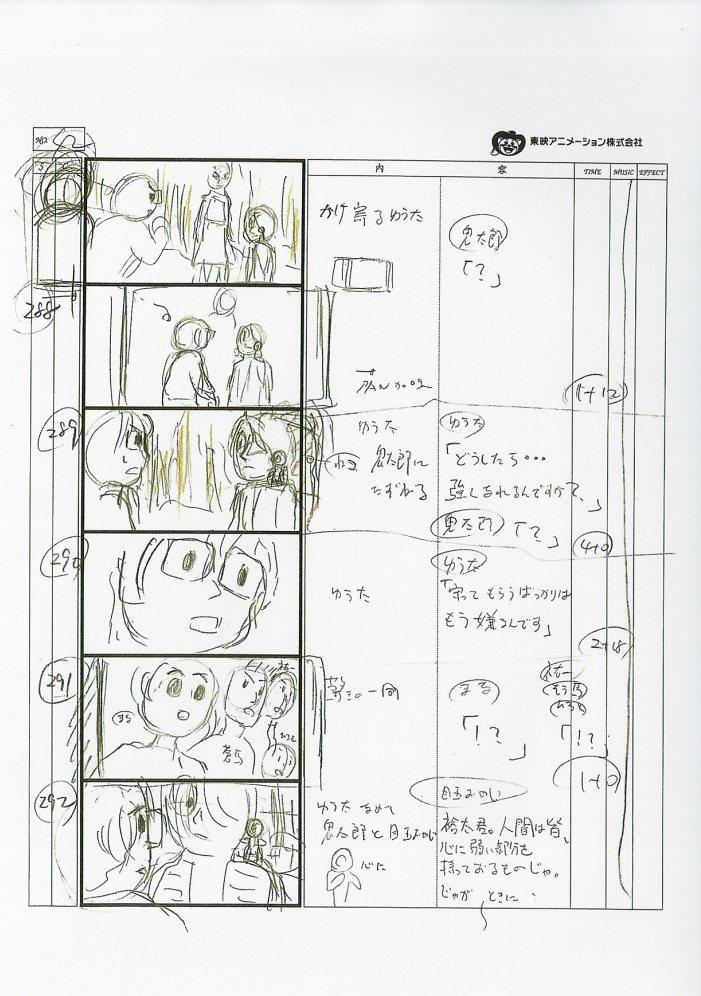 NO.
52
東映アニメーション株式会社
内 容
TIME
MUSIC
EFFECT
288
かけ寄るゆうた
鬼太郎
「!?」
1+12
289
ゆうた
鬼太郎に
たずねる
ゆうた
「どうしたら・・・
強くなれるんですか?」
鬼太郎
「?」
4+0
290
ゆうた
ゆうた
「守ってもらうばっかりは
もう嫌なんです」
2+18
291
まな
蒼馬
裕一
驚きの一同
まな
「!?」
裕一
そう馬
「!?」
1+0
292
ゆうた なめて
鬼太郎と目玉おやじ
心に
目玉おやじ
裕太君。人間は皆、
心に弱い部分を
持っておるものじゃ。
じゃが ときに